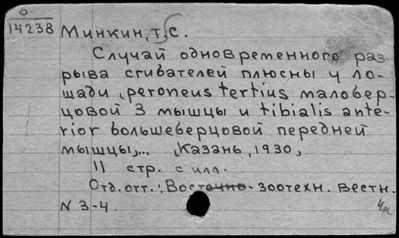 0
14238 Минкин, Т, С.
Случай одновременного раз-
рыва сгибателей плюсны у ло-
шади, peroneus tertius маловер-
цовой 3 мышцы и tibialis ante-
rior большеверцовой передней
мышцы,.. , Казань, 1930,
11 стр. с илл.
Отд. отт.: Восточно-зоотехн. вестн.
N 3-4.